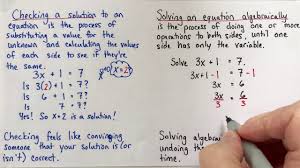 Checking a solution to
an equation is the process of
substituting a value for the
unknown and calculating the values
of each side to see if they're
the same.
3x + 1 = 7 x=2?
Is 3(2)+1 = 7?
Is 6 + 1 = 7?
Is 7 = 7?
Yes! So x=2 is a solution!
Checking feels like convincing
someone that your solution is (or
isn't) correct.
Solving an equation algebraically
is the process of doing one or more
operations to both sides, until one
side has only the variable.
Solve 3x + 1 = 7.
3x+1 -1 = 7 -1
3x = 6
3x/3 = 6/3
Solving algebra
undoing the
time.